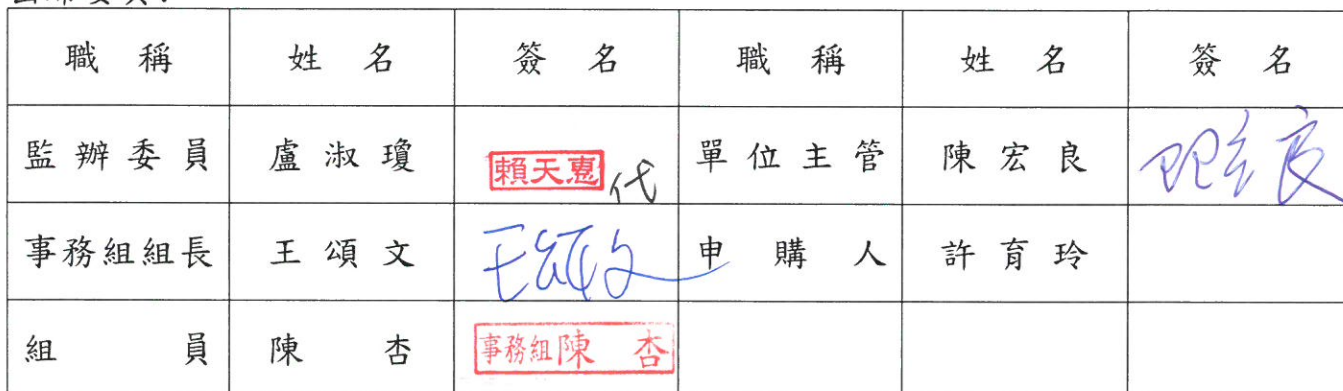 職稱 姓名 簽名 職稱 姓名 簽名
監辦委員 盧淑瓊 賴天惠 代 單位主管 陳宏良 陳宏良
事務組組長 王頌文 王頌文 申購人 許育玲
組員 陳杏 事務組陳杏